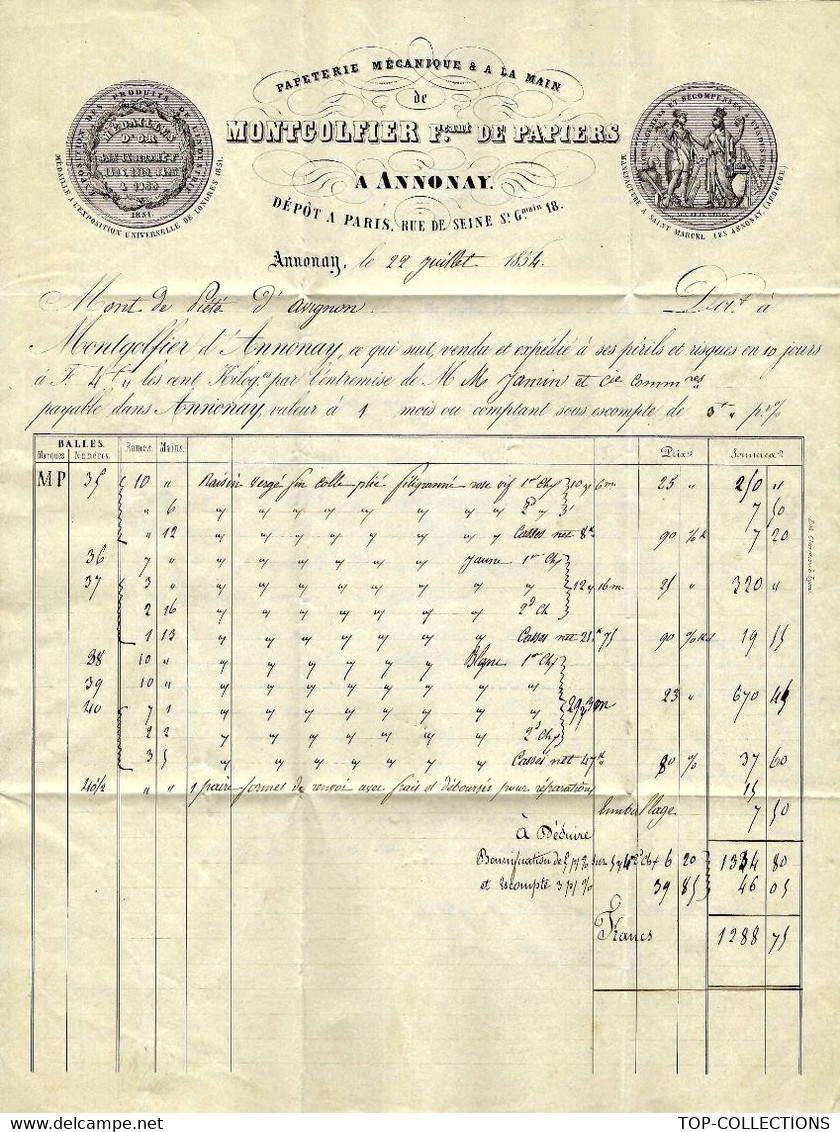 PAPETERIE MÉCANIQUE & A LA MAIN
de
MONTGOLFIER F.cant DE PAPIERS
A ANNONAY.
DÉPÔT A PARIS, RUE DE SEINE St Gmain 18.
EXPOSITION DES PRODUITS DE L'INDUSTRIE
MÉDAILLES
D'OR
1851
MÉDAILLE A L'EXPOSITION UNIVERSELLE DE LONDRES 1851.
MANUFACTURE A SAINT MARCEL LES ANNONAY, (ARDÈCHE)
Annonay, le 22 juillet 1854.
Mont de Piété d'avignon. Doit à
Montgolfier d'Annonay, ce qui suit, vendu et expédié à ses périls et risques en 10 jours
à F. 4 f " les cent Kilog.es par l'entremise de M M. Jamin et cie commres
payable dans Annonay, valeur à 1 mois ou comptant sous escompte de 3 f " p. %
BALLES.
Marques Numéros. Rames. Mains. Prix Sommes
MP 35 10 " Raisin vergé fin collé plié filigranné rose vif 1er Ch 10 y 6m 25 " 250 "
" 6 " " " " " " " " 2d " 3' 7 50
" 12 " " " " " " " Casses net 8k 90 % k 7 20
36 7 " " " " " " " Jaune 1er Ch
37 3 " " " " " " " " " 12 y 16 m 25 " 320 "
2 16 " " " " " " " 2d Ch
1 13 " " " " " " " Casses net 21k 75 90 % k 19 55
38 10 " " " " " " Blanc 1er Ch
39 10 " " " " " " " " 23 " 670 45
40 7 1 " " " " " " " " 29
2 2 " " " " " " " 2d Ch
3 5 " " " " " " Casses net 47k 80 % 37 60
40 1/2 " " 1 paire formes de renvoi avec frais et déboursés pour réparations 15
Emballage 7 50
À Déduire
Bonification de 5 p % sur 2d Ch 6 20 1334 80
et escompte 3 p % 39 85 46 05
Francs 1288 75
TOP-COLLECTIONS